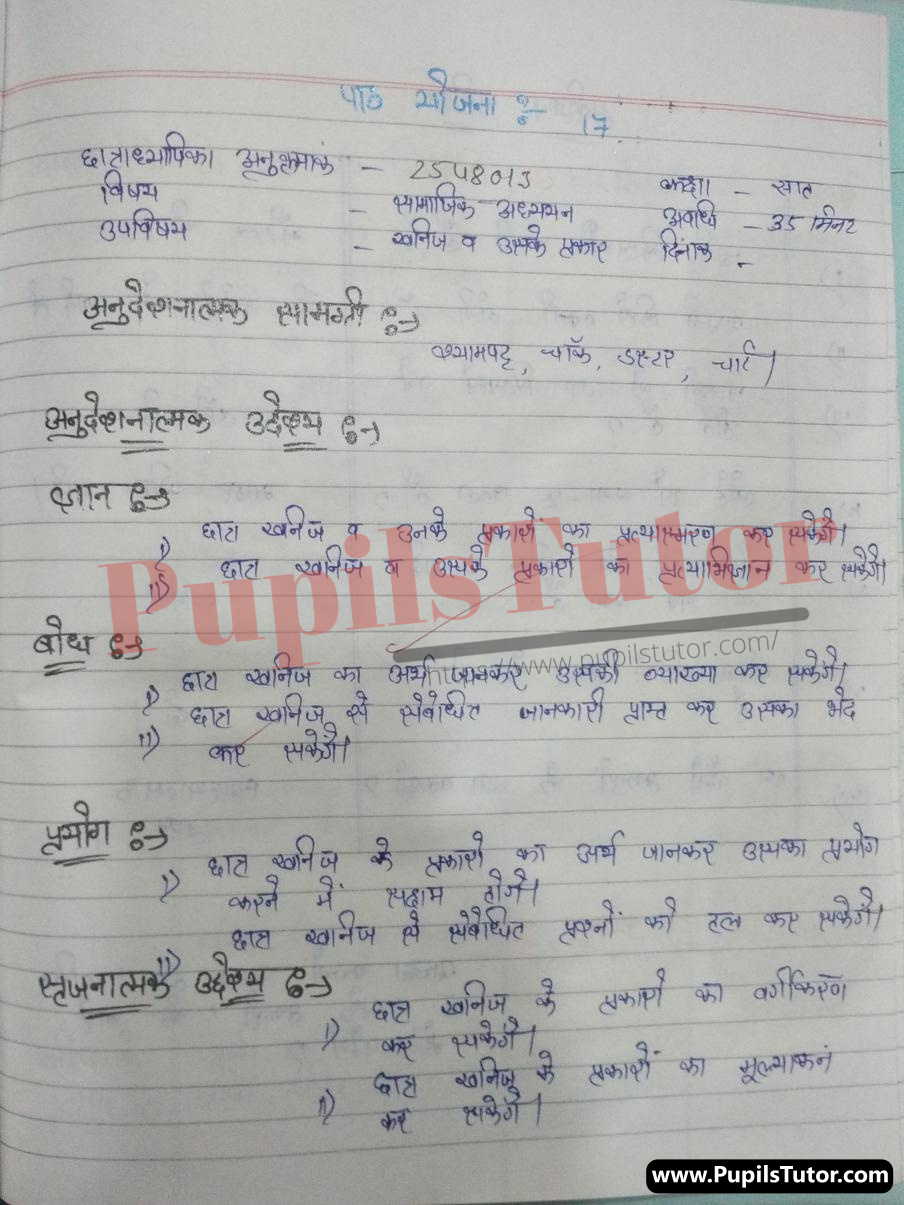 पाठ योजना :- 17
छात्राध्यापिका अनुक्रमांक - 2548013 कक्षा - सात
विषय - सामाजिक अध्ययन अवधि - 35 मिनट
उपविषय - खनिज व उसके प्रकार दिनांक -
अनुदेशनात्मक सामग्री :->
श्यामपट्ट, चॉक, डस्टर, चार्ट।
अनुदेशनात्मक उद्देश्य :->
ज्ञान :->
i) छात्र खनिज व उनके प्रकारों का प्रत्यास्मरण कर सकेंगे।
ii) छात्र खनिज व उसके प्रकारो का प्रत्याभिज्ञान कर सकेंगे।
PupilsTutor
https://www.pupilstutor.com/
बोध :->
i) छात्र खनिज का अर्थ जानकर उसकी व्याख्या कर सकेगे।
ii) छात्र खनिज से संबंधित जानकारी प्राप्त कर उसका भेद
कर सकेगें।
प्रयोग :->
i) छात्र खनिज के प्रकारो का अर्थ जानकर उसका प्रयोग
करने में सक्षम होगें।
ii) छात्र खनिज से संबंधित प्रश्नों को हल कर सकेगें।
सृजनात्मक उद्देश्य :->
i) छात्र खनिज के प्रकारो का वर्गीकरण
कर सकेगें।
ii) छात्र खनिज के प्रकारों का मूल्याकनं
कर सकेगें।
www.PupilsTutor.com